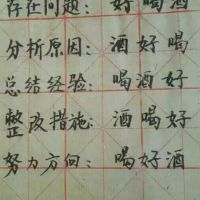 存在问题：好喝酒
分析原因：酒好喝
总结经验：喝酒好
整改措施：酒喝好
努力方向：喝好酒